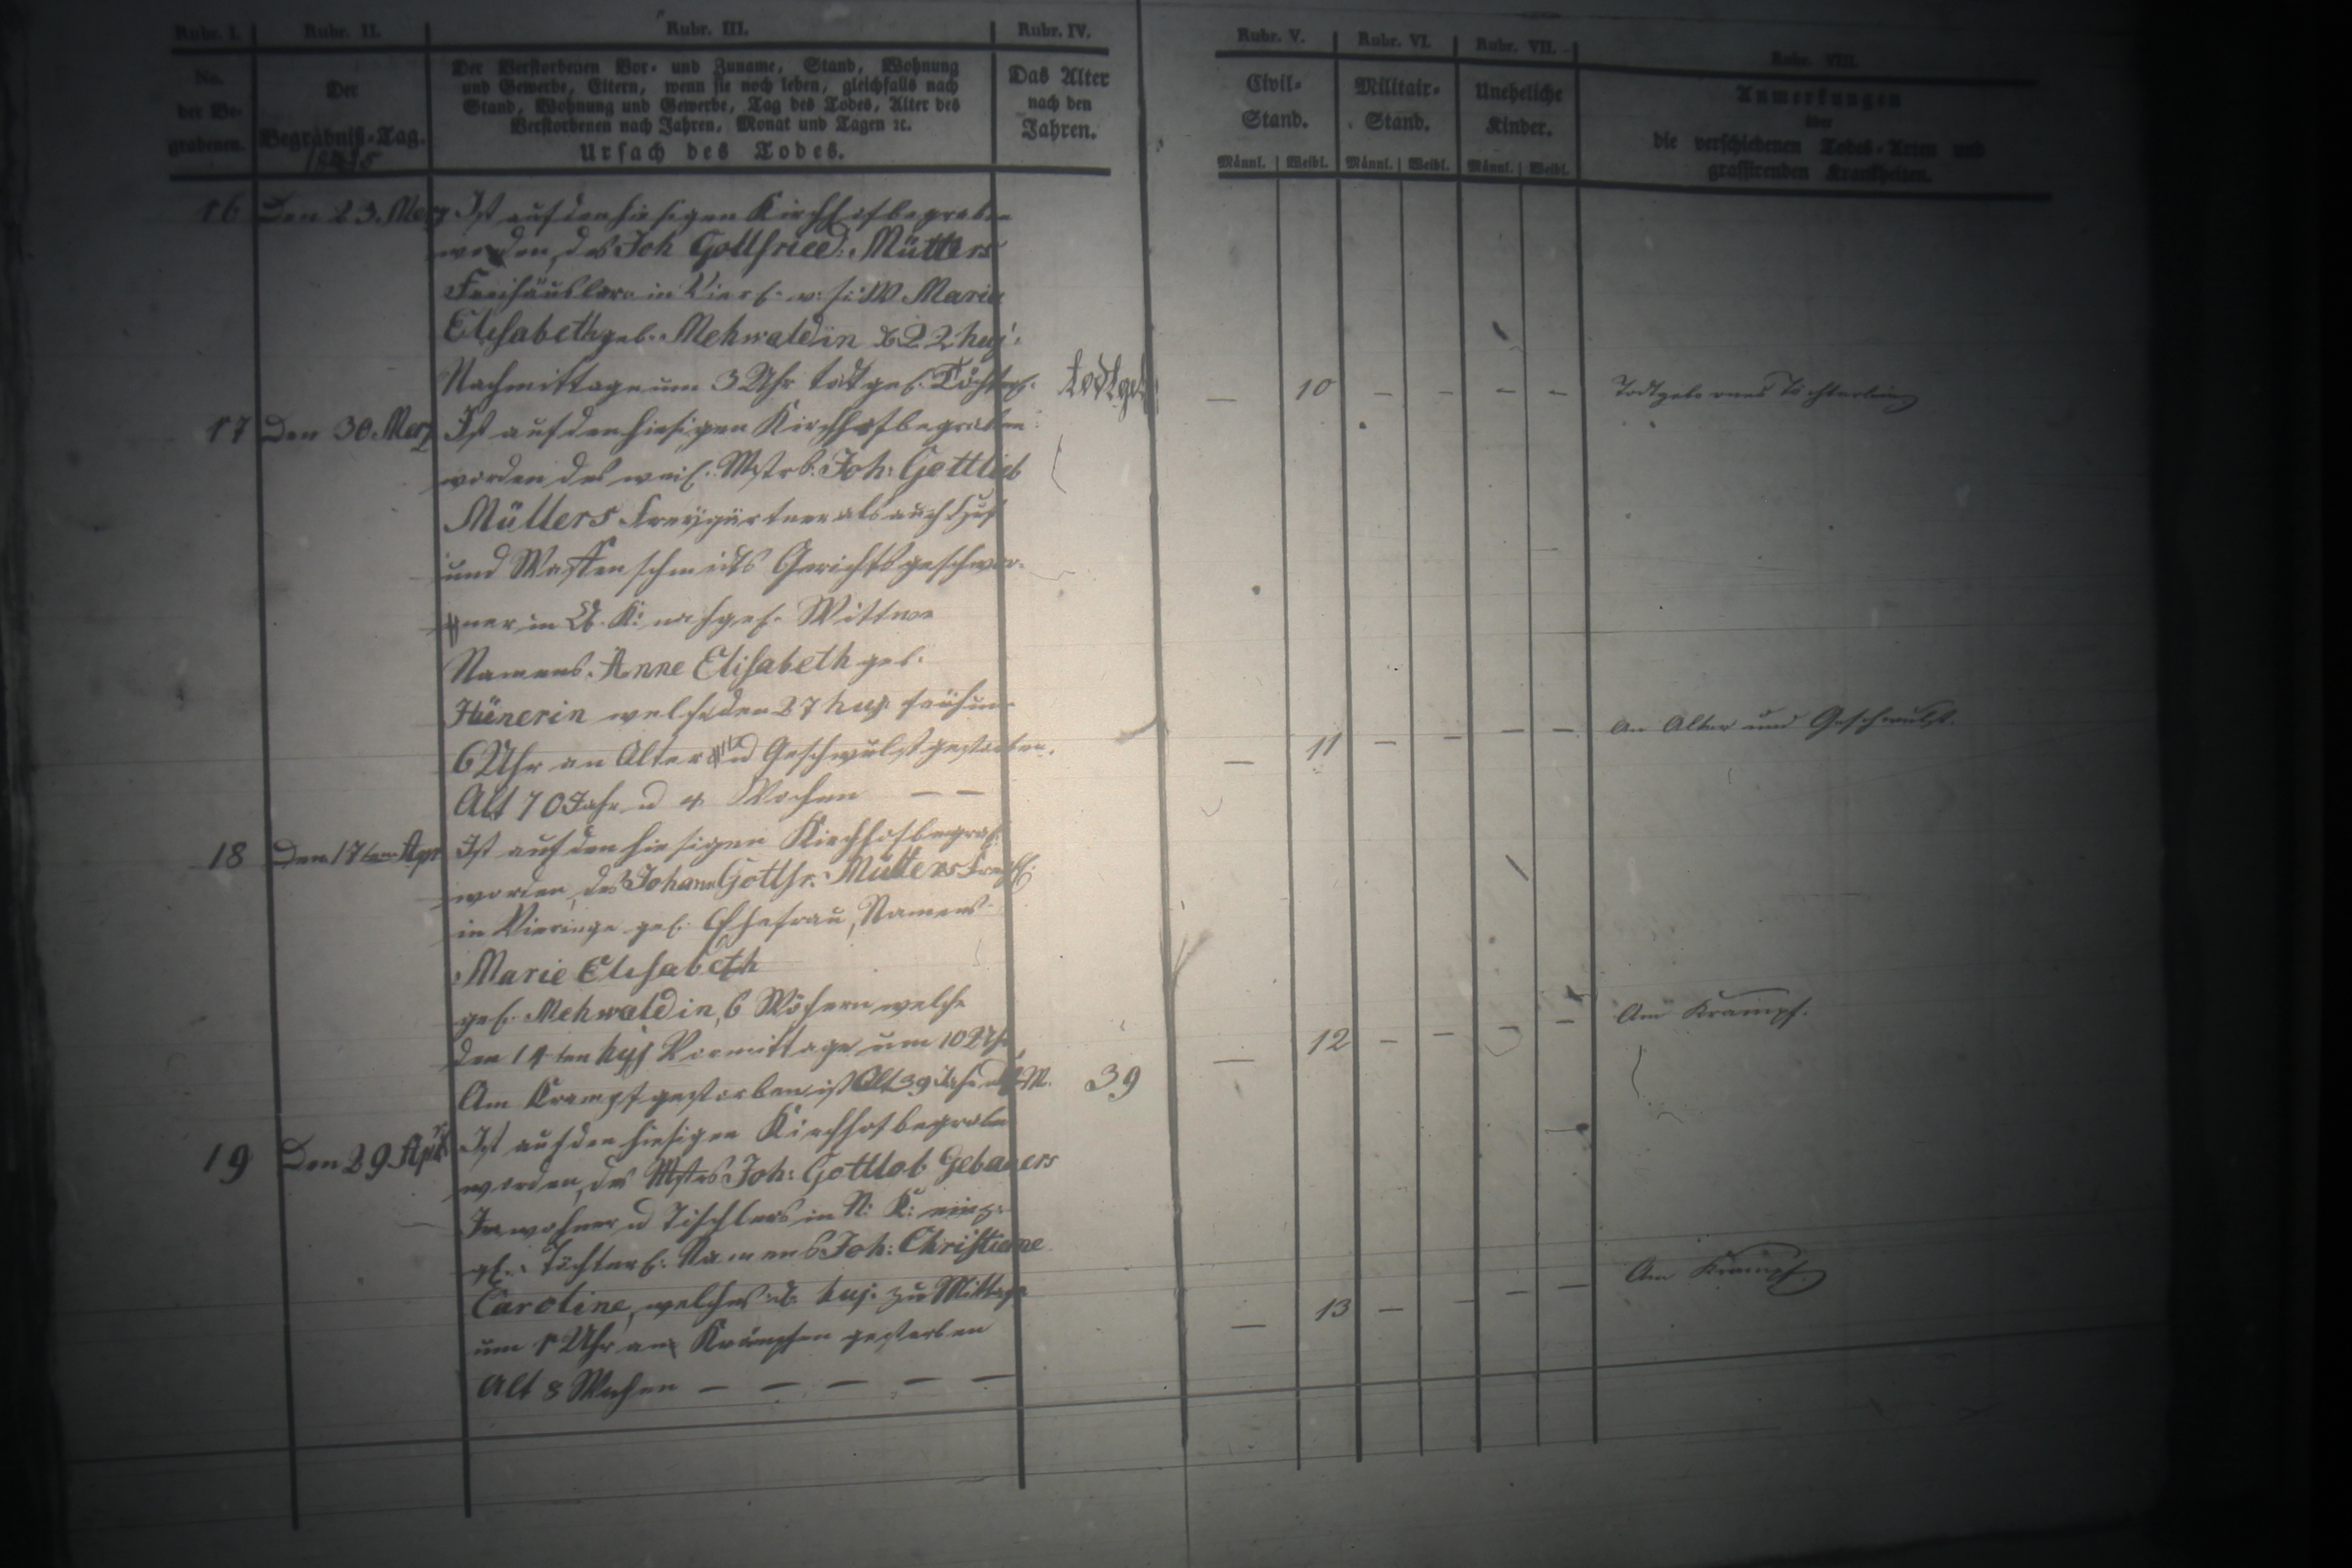 Rubr. I.
Rubr. II.
Rubr. III.
Rubr. IV.
Rubr. V.
Rubr. VI.
Rubr. VII.
Rubr. VIII.
No.
der Be-
grabenen.
Der
Begräbniß-Tag.
Der Verstorbenen Vor- und Zuname, Stand, Wohnung
und Gewerbe, Eltern, wenn sie noch leben, gleichfalls nach
Stand, Wohnung und Gewerbe, Tag des Todes, Alter des
Verstorbenen nach Jahren, Monat und Tagen ꝛc.
Ursach des Todes.
Das Alter
nach den
Jahren.
Civil-
Stand.
Militair-
Stand.
Uneheliche
Kinder.
Anmerkungen
über
die verschiedenen Todes-Arten und
grassirenden Krankheiten.
Männl. Weibl. Männl. Weibl. Männl. Weibl.
16 Den 23. Merz Ist auf den hiesigen Kirchhof begraben
worden, des Joh Gottfried: Müllers
Freihäuslers in
Maria
Elisabeth geb. Mehwaldin d. 22 huj:
Nachmittage um 3 Uhr todtgeb. Töchterl.
todtgeb. — 10 — — — — Todtgebornes Töchterlein
17 Den 30. Merz Ist auf den hiesigen Kirchhof begraben
worden des weil. Mstrs. Joh: Gottlieb
Müllers Freygärtner als auch Huf
und Waffenschmidts Gerichtsgeschwor-
ner in K: nachgel. Wittwe
Namens. Anne Elisabeth geb.
Hünerin welche den 27 huj. früh um
6 Uhr an Alter und Geschwulst gestorben.
Alt 70 Jahr u 4 Wochen — —
— 11 — — — — An Alter und Geschwulst.
18 Den 17ten Apr Ist auf den hiesigen Kirchhof begrab.
worden, des Johann Gottfr. Müllers
in gel. Ehefrau, Namens
Marie Elisabeth
geb. Mehwaldin, 6 Wöchern welche
den 14ten huj Vormittage um 10 Uhr
Am Krampf gestorben ist Alt 39 Jahr
39 — 12 — — — — Am Krampf.
19 Den 29 April Ist auf den hiesigen Kirchhof begraben
worden, des Mstrs Joh: Gottlob Gebauers
Inwohner u Tischlers in N: K: einz:
gel: Töchterl: Namens Joh: Christiane
Caroline, welches huj. zu Mittage
um 1 Uhr an Krämpfen gestorben
Alt 8 Wochen — — — — —
— 13 — — — — Am Krampf.